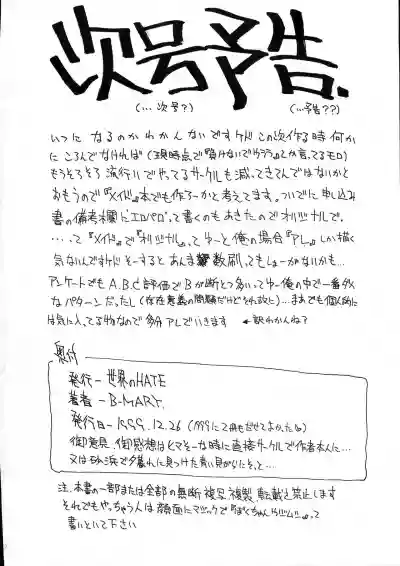 次号予告.
(…次号?) (…予告??)
いつになるのかわかんないですケドこの次作る時何か
にころんでなければ(現時点で
もうそろそろ流行りでやってるサークルも減ってきてんではないかと
おもうので『メイド』本でも作ろーかと考えてます。ついでに申し込み
書の備考欄に"エロパロ"って書くのもあきたのでオリジナルで。
…って『メイド』で『オリジナル』ってゆーと俺の場合『アレ』しか描く
気ないんですケド そーするとあんま数刷ってもしょーがないかも…
アンケートでもA,B,C評価でBが断とつ多いってゆー俺の中で一番外
なパターンだったし(存在意義の問題だけどそれ故に)…まあでも個人的に
は気に入ってる物なので多分アレでいきます ←訳わかんね?
奥付
発行ー世界のHATE
著者ーB-MARY.
発行日ー1999.12.26 (1999にて
御意見、御感想はヒマそーな時に直接サークルで作者本人に…
又は砂浜で夕暮れに見つけた青い貝がらにそっと…
注.本書の一部または全部の無断複写、複製、転載を禁止します
それでもやっちゃう人は顔面にマジックで『ぼくちゃん
書いといて下さい